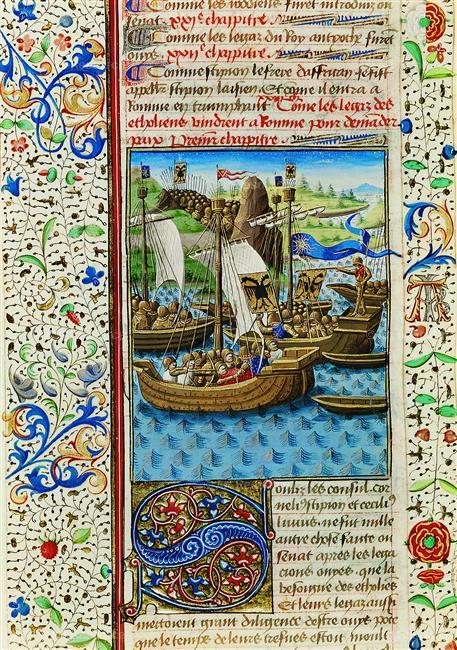 Comme les rodiens furet introduiz ou
senat xxj.e chapitre
Comme les legaz du Roy antioche furet
ouys xxij.e chappitre
Comme scypion le frere daffrican se fist
scypion Et come il entra a
Romme en triumphant Come les legaz des
etholiens vindrent a Romme pour demader
paix premier chapitre
les consul cor
scipion et
ne fut nulle
autre chose faicte ou
senat apres les lega
cions ouyes que la
besongne des etholies
Et leurs legaz aussi
grant diligence destre ouys pote
que le temps de leurs treues estoit moult